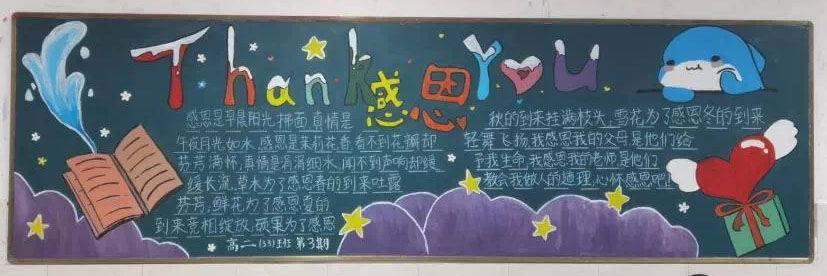 Thank You
感恩
感恩是早晨阳光,拂面,真情是
午夜月光,如水,感恩是茉莉花香,看不到花瓣却
芬芳满怀,真情是涓涓细水,闻不到声响却绿
线长流,草木为了感恩春的到来吐露
芬芳,鲜花为了感恩夏的
到来竞相绽放,硕果为了感恩
高二(33)班 第3期
秋的到来挂满枝头,雪花为了感恩冬的到来
轻舞飞扬,我感恩我的父母是他们给
予我生命,我感恩我的老师是他们
教会我做人的道理,心怀感恩吧!